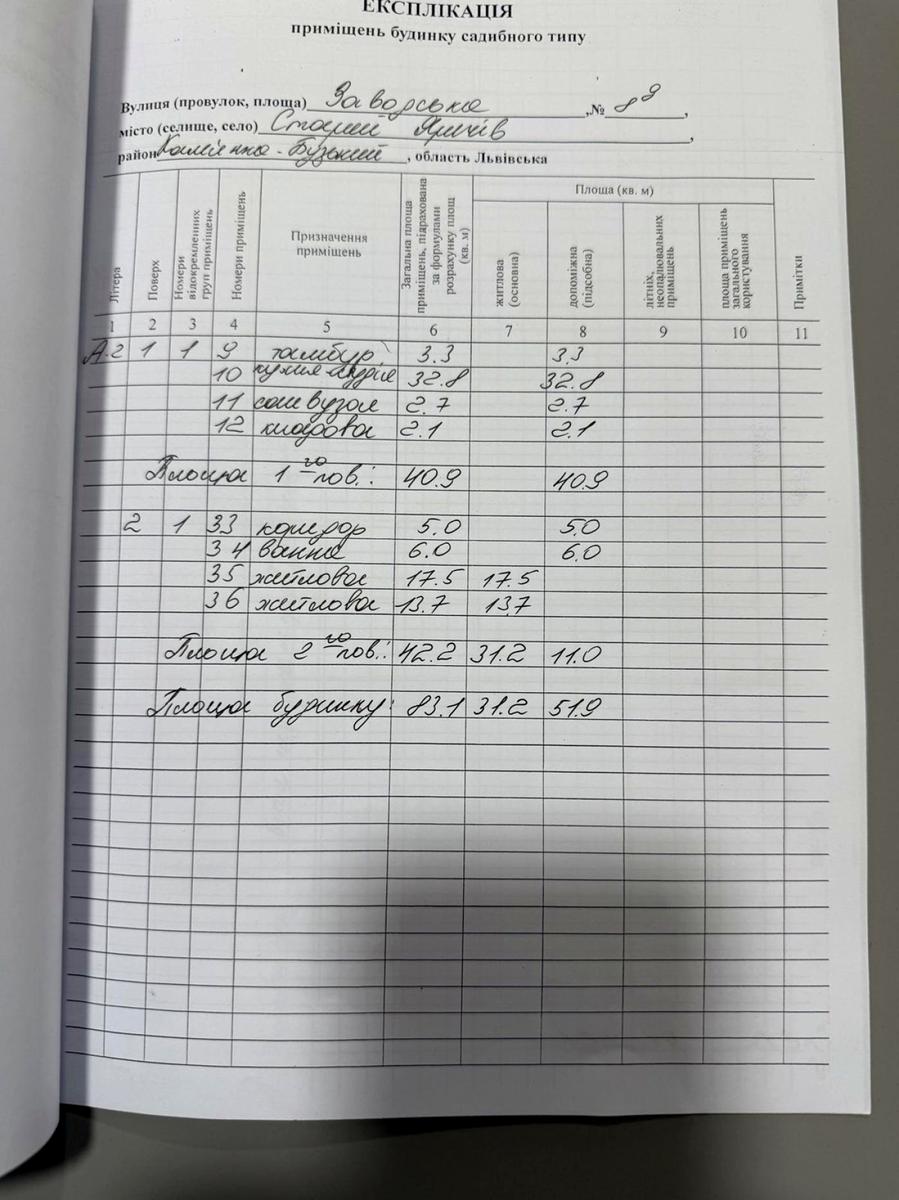 ЕКСПЛІКАЦІЯ
приміщень будинку садибного типу
Вулиця (провулок, площа) Заворська, № 89,
місто (селище, село) Старий Яричів,
район Кам'янка-Бузький, область Львівська
Літера Поверх Номери відокремленних груп приміщень Номери приміщень Призначення приміщень Загальна площа приміщень, підрахована за формулами розрахунку площ (кв. м) Площа (кв. м) Примітки
житлова (основна) допоміжна (підсобна) літніх, неопалювальних приміщень площа приміщень загального користування
1 2 3 4 5 6 7 8 9 10 11
А-2 1 1 9 тамбур 3.3 3.3
10 кухня-студія 32.8 32.8
11 санвузол 2.7 2.7
12 кладова 2.1 2.1
Площа 1го пов.: 40.9 40.9
2 1 33 коридор 5.0 5.0
34 ванна 6.0 6.0
35 житлова 17.5 17.5
36 житлова 13.7 13.7
Площа 2го пов.: 42.2 31.2 11.0
Площа будинку: 83.1 31.2 51.9